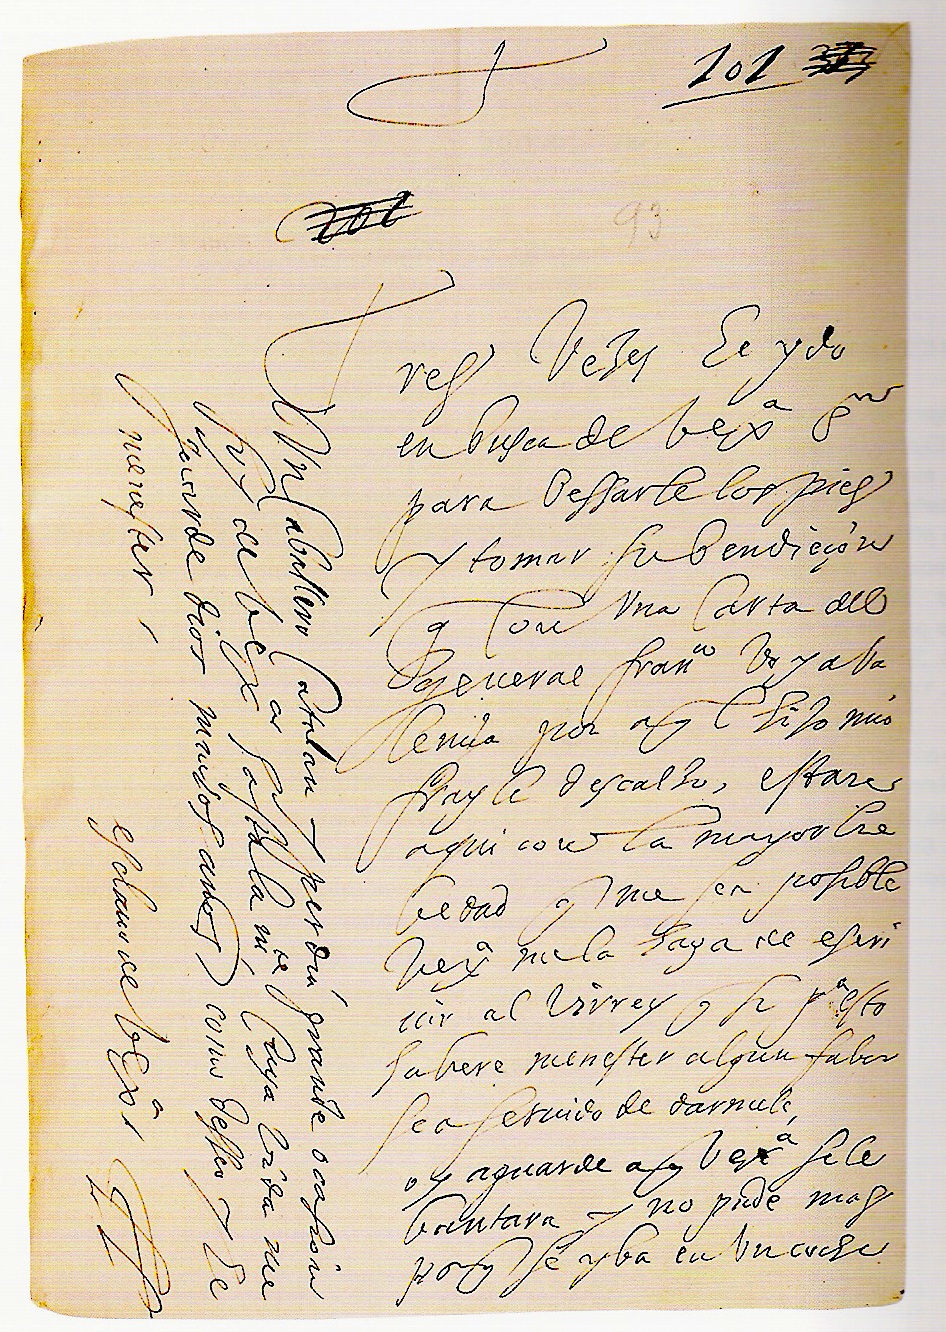 101
101
93
res Vezes he ydo
en busca de bex.ª
para bessarle los pies
y tomar su bendiçion
q con una Carta del
general fran.co
lencia por aq hijo mio
frayle descalzo, estare
aqui con la mayor bre
bedad q me sea posible
Vexª me la haga de escri
uir al Virrey q si pª esto
hubere menester algun fabor
sea seruido de darmele,
oy aguarde a q Vexª se le
bantara y no pude mas
porq se yba en un coche
Un Caballero Catalan y perdia grande ocasion
de bexª Gastela
guarde Dios muchos años como desseo y he
menester,
esclauo de bexª